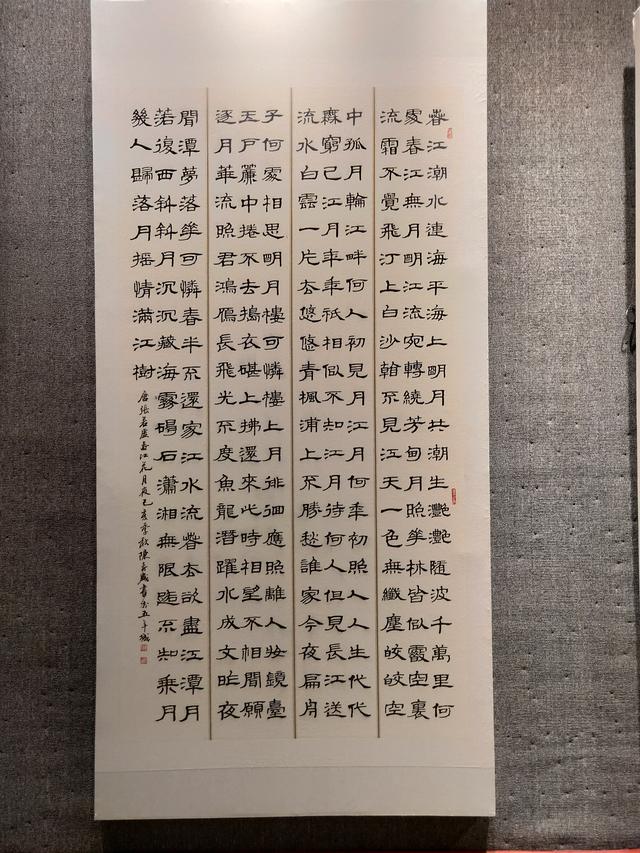 春江潮水連海平海上明月共潮生灩灩随波千萬里何
處春江無月明江流宛轉繞芳甸月照華林皆似霰空裏
流霜不覺飛汀上白沙看不見江天一色無纖塵皎皎空
中孤月輪江畔何人初見月江月何年初照人人生代代
無窮已江月年年祇相似不知江月待何人但見長江送
流水白雲一片去悠悠青楓浦上不勝愁誰家今夜扁舟
子何處相思明月樓可憐樓上月徘徊應照離人妝鏡臺
玉戶簾中捲不去搗衣碪上拂還來此時相望不相聞願
逐月華流照君鴻鴈長飛光不度魚龍潛躍水成文昨夜
閒潭夢落華可憐春半不還家江水流春去欲盡江潭月
落復西斜斜月沉沉藏海霧碣石瀟湘無限路不知乘月
幾人歸落月搖情滿江樹
唐張若虛春江花月夜己亥季秋陳盛書於五羊城